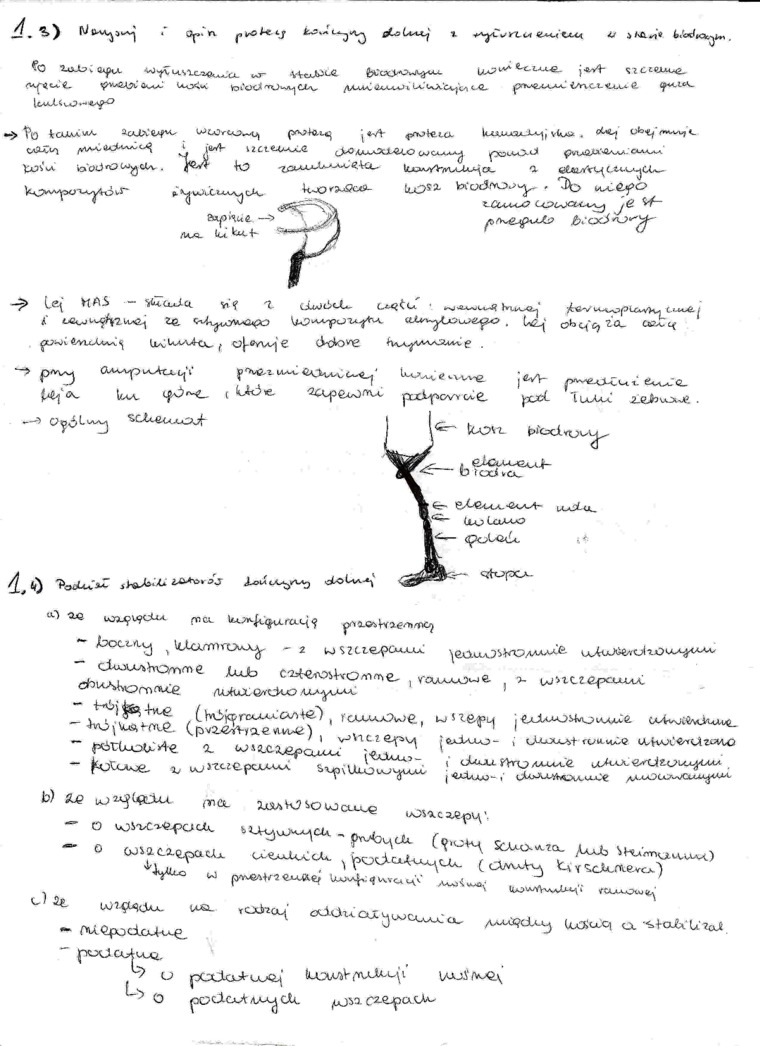 1.3) Narysuj i opisz protezę kończyny dolnej z wyłuszczeniem w stawie biodrowym.
Po zabiegu wyłuszczenia w stawie biodrowym konieczne jest szczelne
ujęcie grzebieni kości biodrowych uniemożliwiające przemieszczenie guza
kulszowego
→ Po takim zabiegu wzorcową protezą jest proteza kanadyjska. Lej obejmuje
całą miednicę i jest szczelnie domodelowany ponad grzebieniami
kości biodrowych. Jest to zamknięta konstrukcja z elastycznych
kompozytów żywicznych tworząca kosz biodrowy. Do niego
zamocowany jest
przegub biodrowy
zapięcie →
na kikut
→ Lej MAS – składa się z dwóch części: wewnętrznej termoplastycznej
i zewnętrznej ze sztywnego kompozytu akrylowego. Lej obciąża całą
powierzchnię kikuta, oferuje dobre trzymanie.
→ przy amputacji przezmiednicznej konieczne jest przedłużenie
leja ku górze, które zapewni podparcie pod łuki żebrowe.
→ ogólny schemat
← kosz biodrowy
← element
biodra
← element uda
← kolano
← goleń
← stopa
1.4) Podział stabilizatorów kończyny dolnej
a) ze względu na konfigurację przestrzenną
- boczny, klamrowy – z wszczepami jednostronnie utwierdzonymi
- dwustronne lub czterostronne, ramowe, z wszczepami
dwustronnie utwierdzonymi
- trójkątne (trójgraniaste), ramowe, wszepy jednostronnie utwierdzone
- trójkątne (przestrzenne), wszczepy jedno- i dwustronnie utwierdzono
- półkoliste z wszczepami jedno- i dwustronnie utwierdzonymi
- kołowe z wszczepami szpilkowymi jedno- i dwustronnie mocowanymi
b) ze względu na zastosowane wszczepy:
- o wszczepach sztywnych – grubych (groty Schanza lub Steimanna)
- o wszczepach cienkich, podatnych (druty Kirschnera)
↳ tylko w przestrzennej konfiguracji nośnej konstrukcji ramowej
c) ze względu na rodzaj oddziaływania między kością a stabilizat.
- niepodatne
- podatne
↳ o podatnej konstrukcji nośnej
↳ o podatnych wszczepach